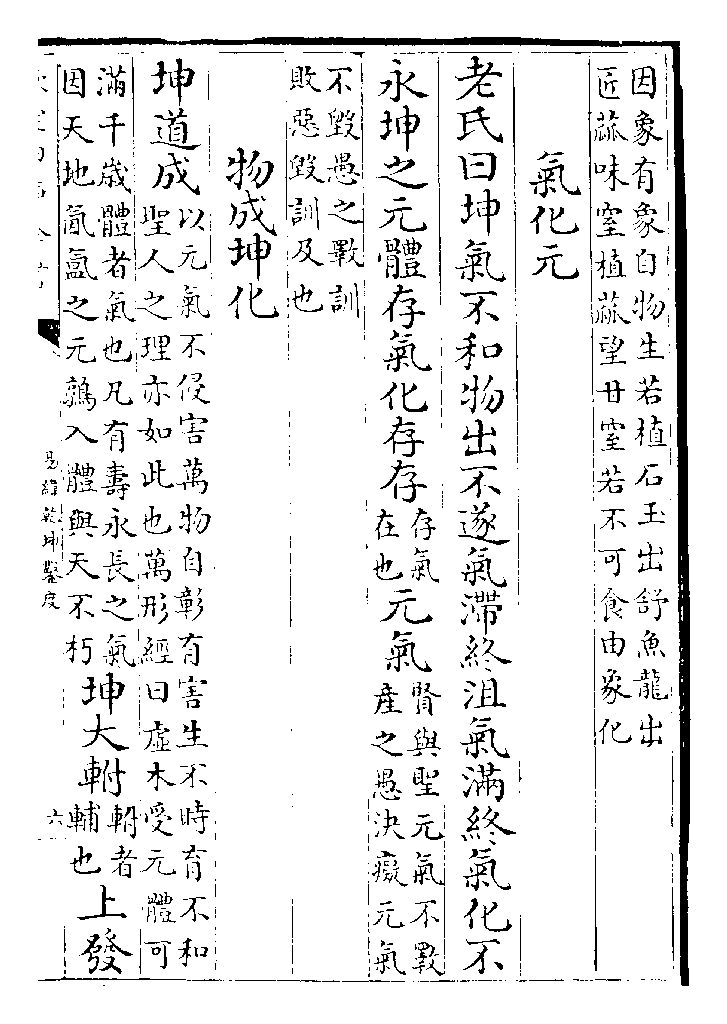 因象有象自物生若植石玉出舒魚龍出
匠蒜味窒植蒜望甘窒若不可食由象化
氣化元
老氏曰坤氣不和物出不遂氣滯終沮氣滿終氣化不
永坤之元體存氣化存存
存氣
在也
元氣
賢與聖元氣不斁
產之愚決癡元氣
不毀愚之斁訓
敗惡毀訓及也
物成坤化
坤道成
以元氣不侵害萬物自彰有害生不時育不和
聖人之理亦如此也萬形經曰虛木受元體可
滿千歲體者氣也凡有壽永長之氣
因天地氤氳之元鶉入體與天不朽
坤大軵
軵者
輔也
上發
易緯乾坤鑿度
六